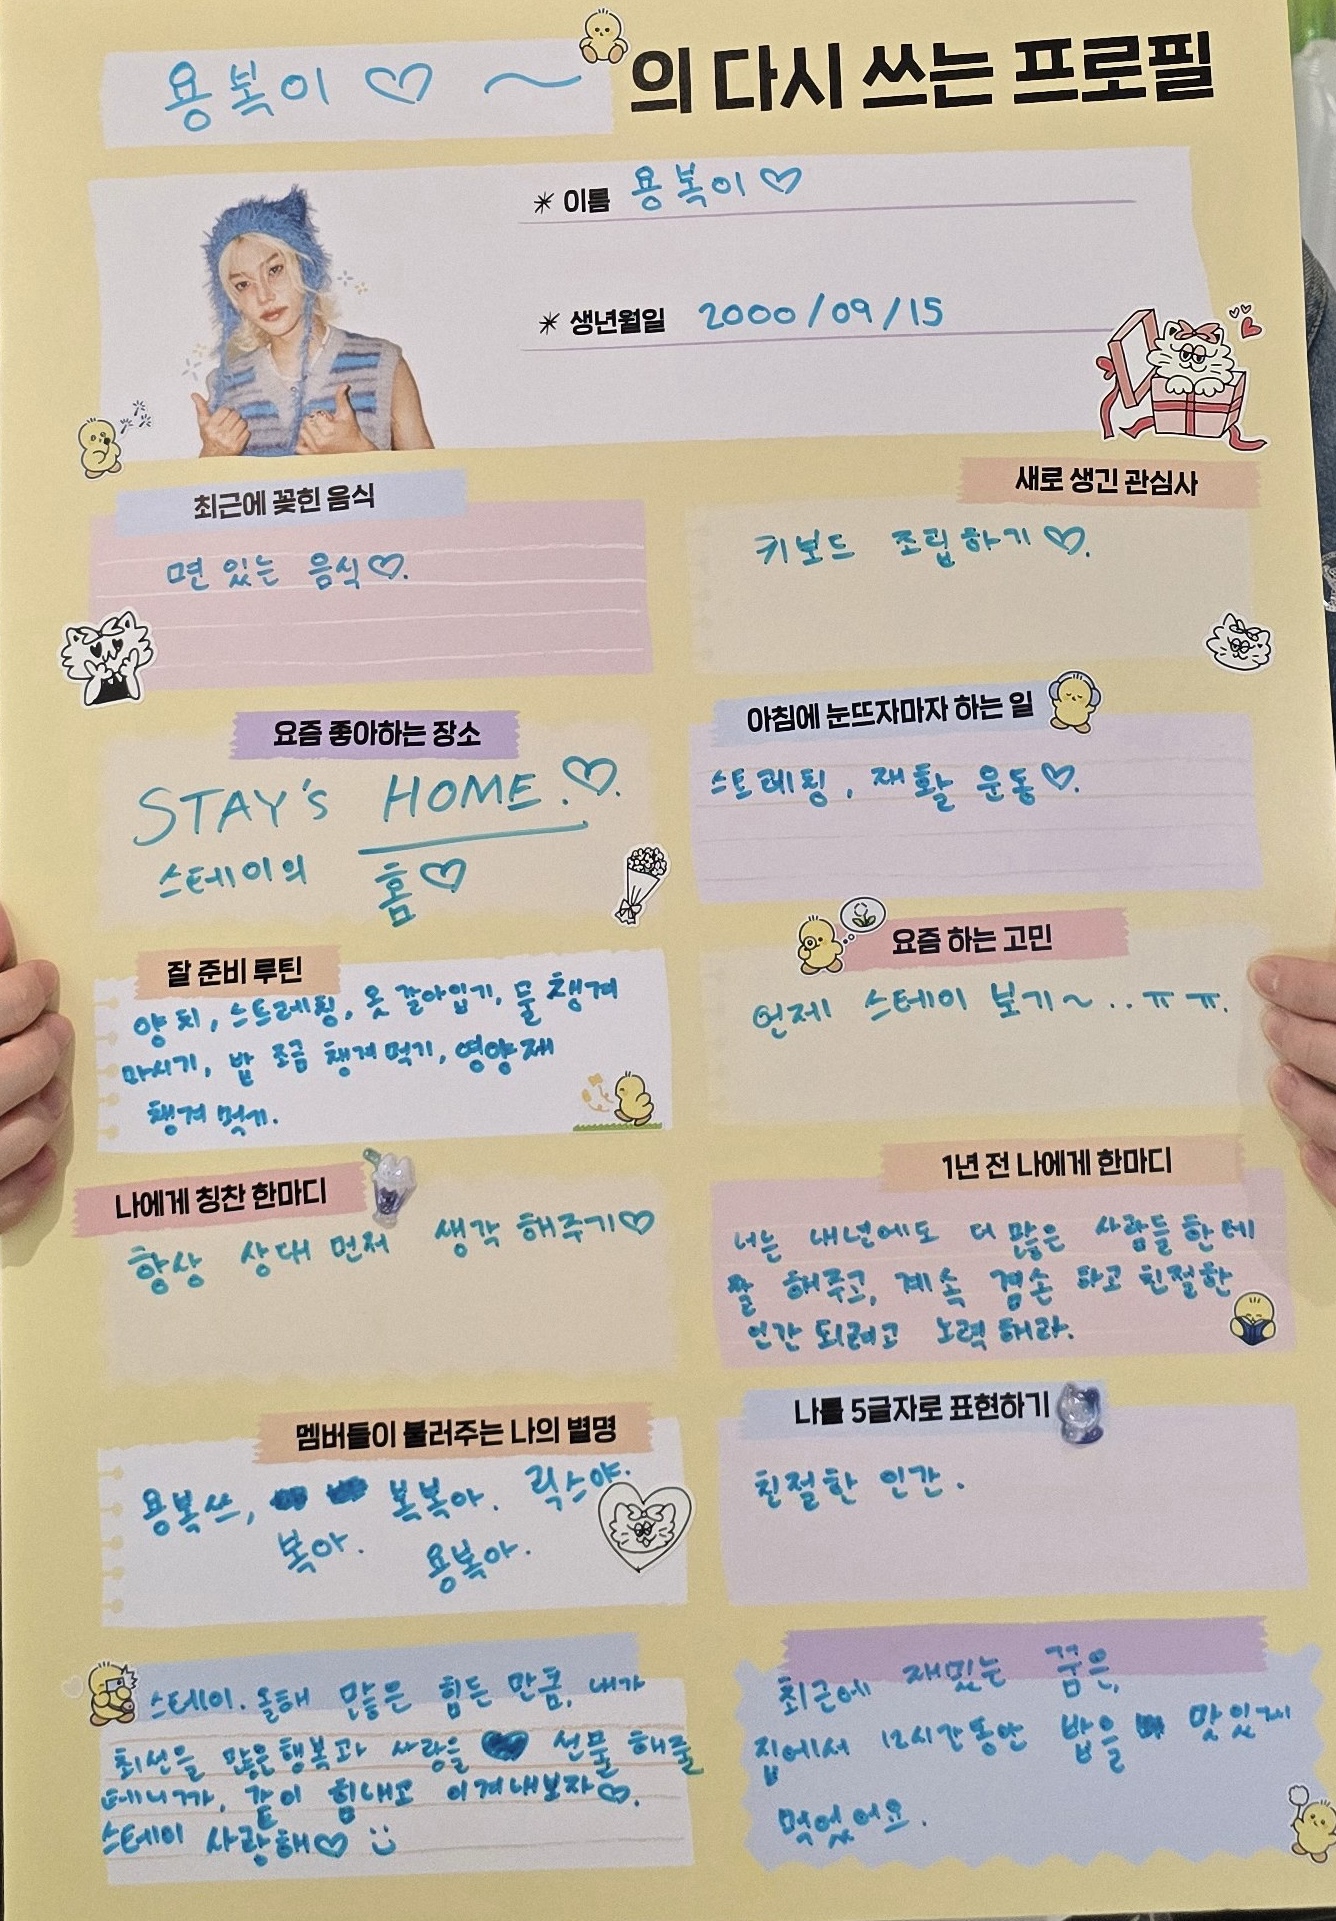 용복이♡ ~ 의 다시 쓰는 프로필
* 이름 용복이♡
* 생년월일 2000/09/15
최근에 꽂힌 음식
면 있는 음식♡.
새로 생긴 관심사
키보드 조립하기♡.
요즘 좋아하는 장소
STAY's HOME.♡.
스테이의 홈♡
아침에 눈뜨자마자 하는 일
스트레칭, 재활 운동♡.
잘 준비 루틴
양치, 스트레칭, 옷 갈아입기, 물 챙겨
마시기, 밥 조금 챙겨 먹기, 영양제
챙겨 먹기.
요즘 하는 고민
언제 스테이 보기~..ㅠㅠ.
나에게 칭찬 한마디
항상 상대 먼저 생각 해주기♡
1년 전 나에게 한마디
너는 내년에도 더 많은 사람들한테
잘 해주고, 계속 겸손 하고 친절한
인간 되려고 노력해라.
멤버들이 불러주는 나의 별명
용복쓰, 복복아. 릭스야.
복아. 용복아.
나를 5글자로 표현하기
친절한 인간.
스테이. 올해 많은 힘든 만큼, 내가
최선을 많은 행복과 사랑을 선물 해줄
테니까, 같이 힘내고 이겨내보자♡.
스테이 사랑해♡ :)
최근에 재밌는 꿈은,
집에서 12시간동안 밥을 맛있게
먹었어요.